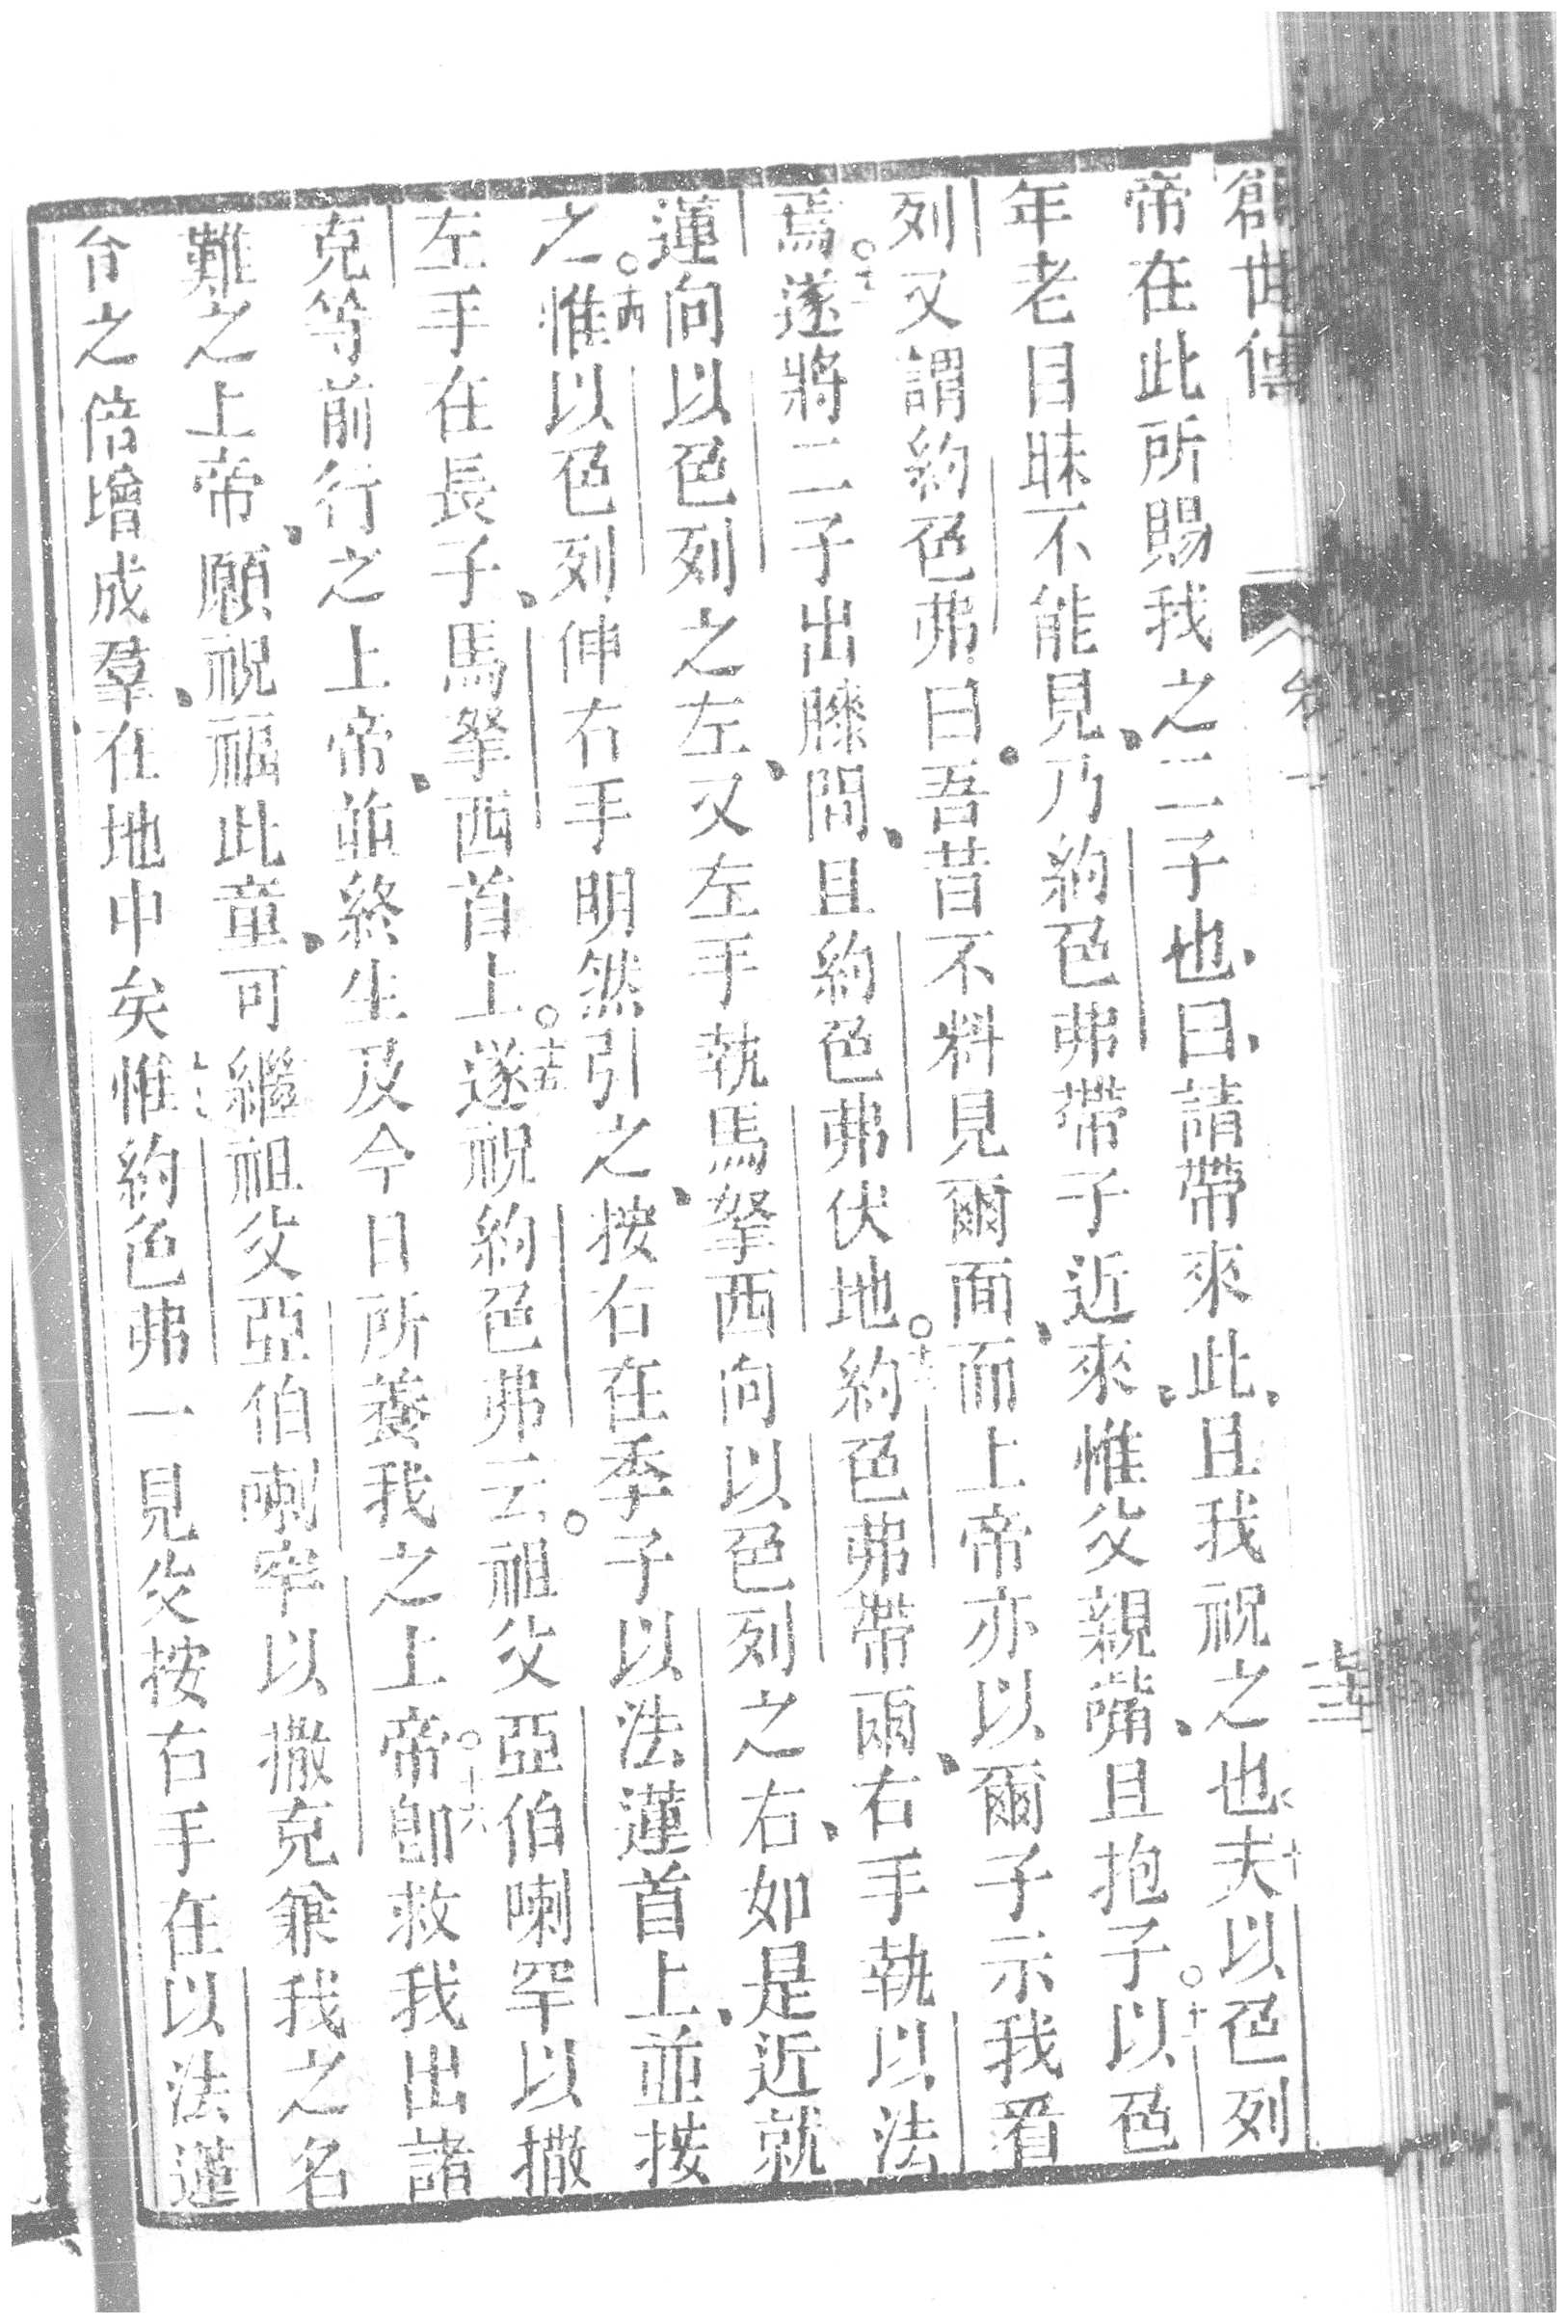 創世傳 卷一 七十三
帝在此所賜我之二子也、曰、請帶來此、且我祝之也、十夫以色列
年老目昧不能見、乃約色弗帶子近來、惟父親嘴、且抱子○十一以色
列又謂約色弗曰、吾昔不料見爾面、而上帝亦以爾子示我看
焉○十二遂將二子出膝間、且約色弗伏地○十三約色弗帶兩、右手執以法
蓮向以色列之左、又左手執馬拏西向以色列之右、如是近就
之○十四惟以色列伸右手明然引之、按右在季子以法蓮首上、並按
左手在長子、馬拏西首上○十五遂祝約色弗云○祖父亞伯喇罕以撒
克等前行之上帝、並終生及今日所養我之上帝○十六卽救我出諸
難之上帝、願祝福此童、可繼祖父亞伯喇罕以撒克兼我之名
之倍增成羣、在地中矣惟約色弗一見父按右手在以法蓮